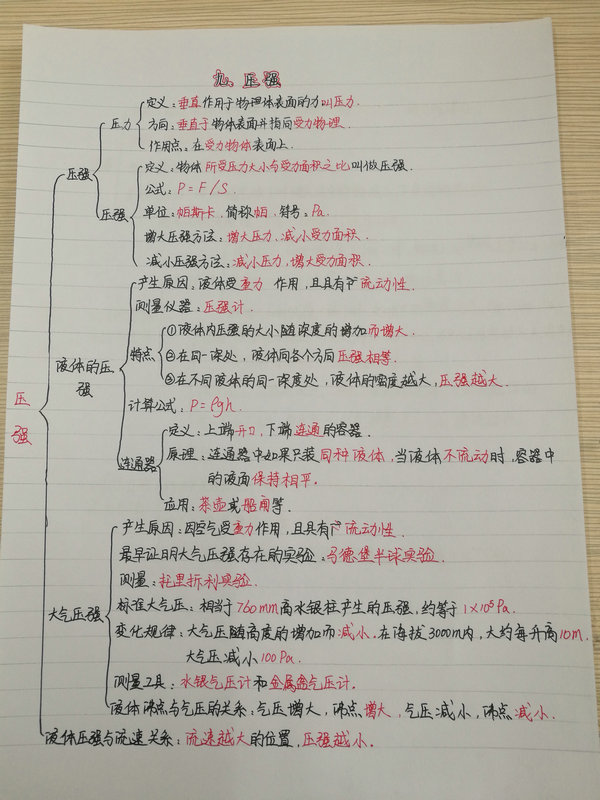 九、压强
压强
压强
压力
定义：垂直作用于物理体表面的力叫压力.
方向：垂直于物体表面并指向受力物理.
作用点：在受力物体表面上.
压强
定义：物体所受压力大小与受力面积之比叫做压强.
公式：P=F/S.
单位：帕斯卡，简称帕，符号：Pa.
增大压强方法：增大压力，减小受力面积.
减小压强方法：减小压力，增大受力面积.
液体的压强
产生原因：液体受重力 作用，且具有流动性.
测量仪器：压强计.
特点
①液体内压强的大小随深度的增加而增大.
②在同一深处，液体向各个方向压强相等.
③在不同液体的同一深度处，液体的密度越大，压强越大.
计算公式：P=ρgh.
连通器
定义：上端开口，下端连通的容器.
原理：连通器中如果只装同种液体，当液体不流动时，容器中
的液面保持相平.
应用：茶壶或船闸等.
大气压强
产生原因：因空气受重力作用，且具有流动性.
最早证明大气压强存在的实验：马德堡半球实验.
测量：托里拆利实验.
标准大气压：相当于760mm高水银柱产生的压强，约等于1×10⁵Pa.
变化规律：大气压随高度的增加而减小.在海拔3000m内，大约每升高10m.
大气压减小100Pa.
测量工具：水银气压计和金属盒气压计.
液体沸点与气压的关系：气压增大，沸点增大，气压减小，沸点减小.
液体压强与流速关系：流速越大的位置，压强越小.